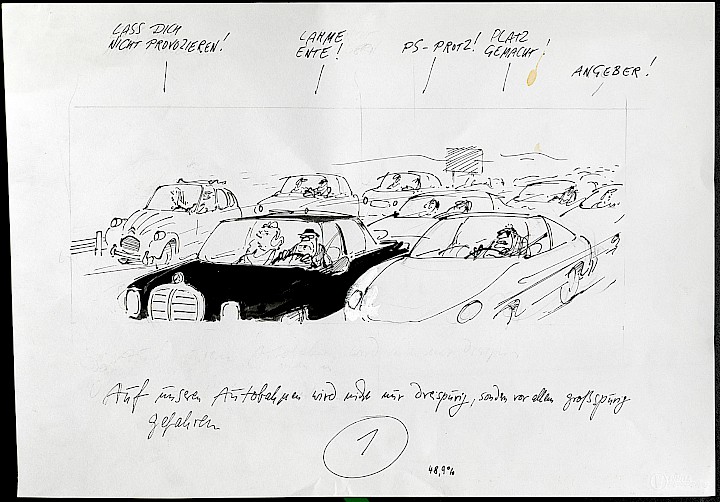 LASS DICH
NICHT PROVOZIEREN!
LAHME
ENTE!
PS-PROTZ!
PLATZ
GEMACHT!
ANGEBER!
Auf unseren Autobahnen wird nicht nur dreispurig, sondern vor allem großspurig
gefahren
1
48,9%